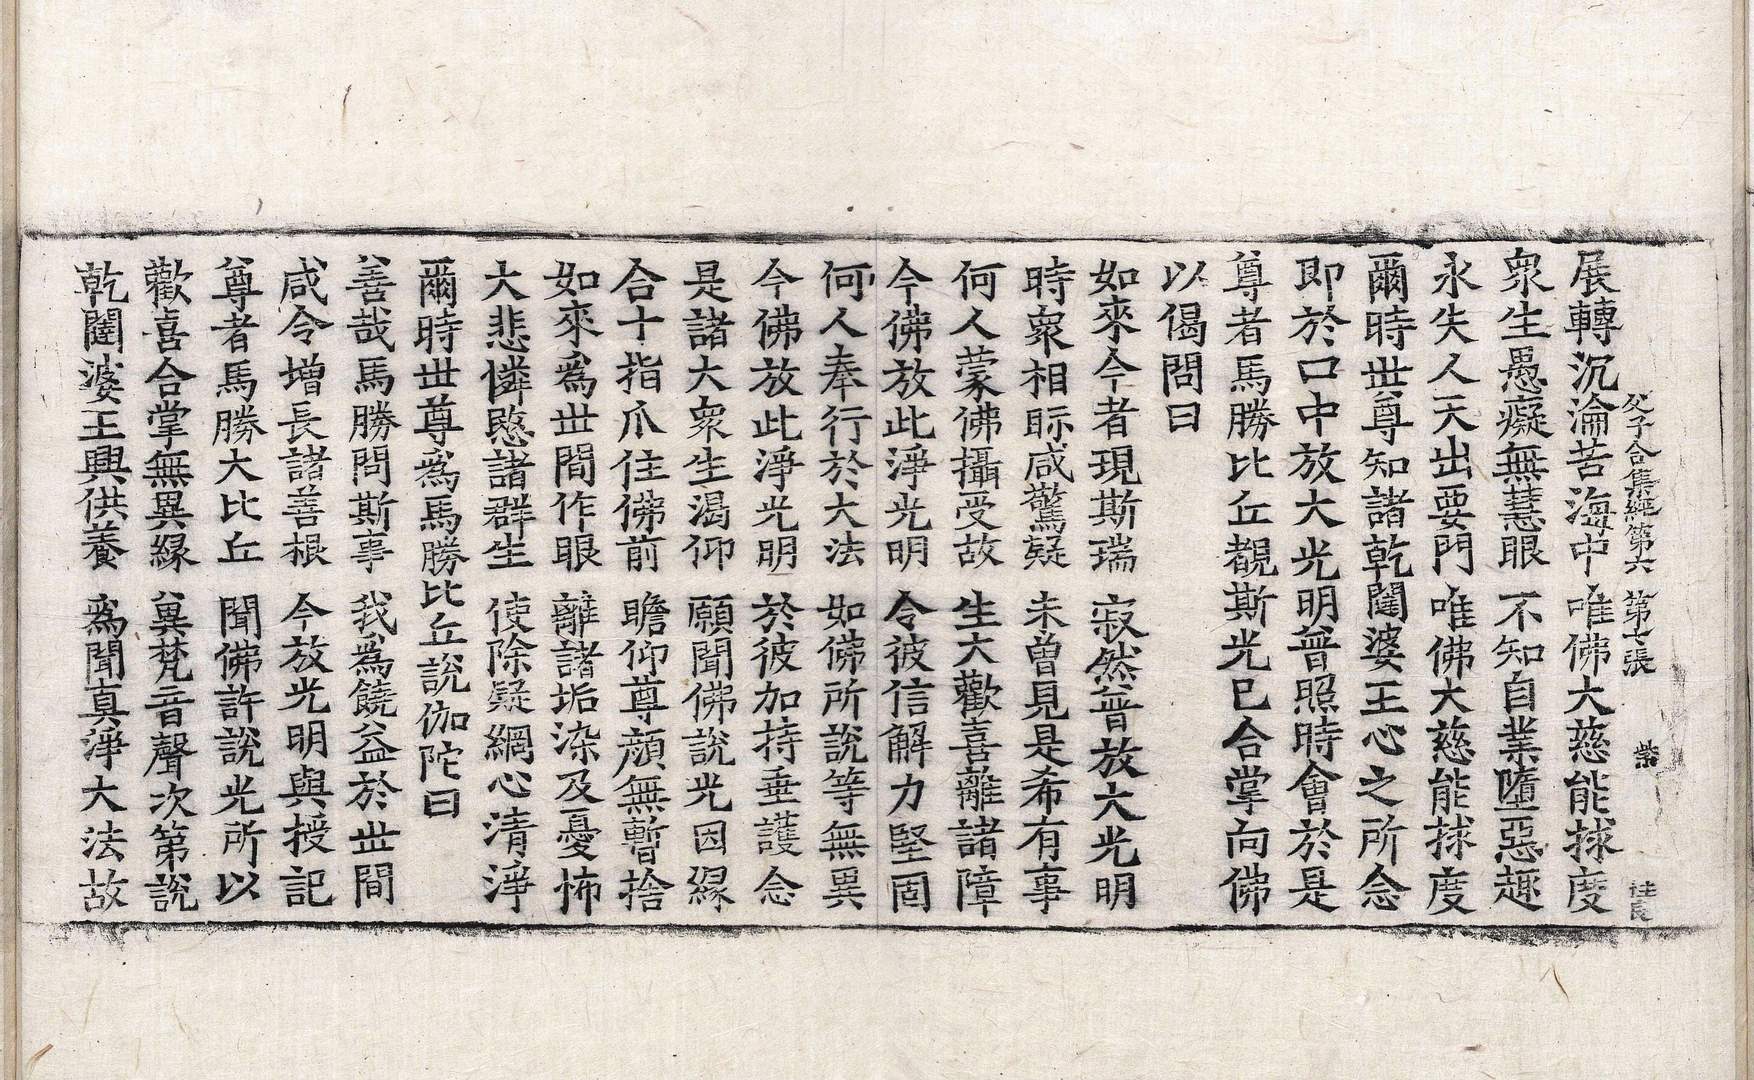 父子合集經第六 第七張 紫
展轉沉淪苦海中 唯佛大慈能拯度
衆生愚癡無慧眼 不知自業墮惡趣
永失人天出要門 唯佛大慈能拯度
爾時世尊知諸乾闥婆王心之所念
即於口中放大光明普照時會於是
尊者馬勝比丘覩斯光已合掌向佛
以偈問曰
如來今者現斯瑞 寂然普放大光明
時衆相眎咸驚疑 未曾見是希有事
何人蒙佛攝受故 生大歡喜離諸障
今佛放此淨光明 令彼信解力堅固
何人奉行於大法 如佛所說等無異
今佛放此淨光明 於彼加持垂護念
是諸大衆生渴仰 願聞佛說光因緣
合十指爪住佛前 瞻仰尊顔無暫捨
如來爲世間作眼 離諸垢染及憂怖
大悲憐愍諸群生 使除疑網心清淨
爾時世尊爲馬勝比丘說伽陀曰
善哉馬勝問斯事 我爲饒益於世間
咸令增長諸善根 今放光明與授記
尊者馬勝大比丘 聞佛許說光所以
歡喜合掌無異緣 冀梵音聲次第說
乾闥婆王興供養 爲聞真淨大法故